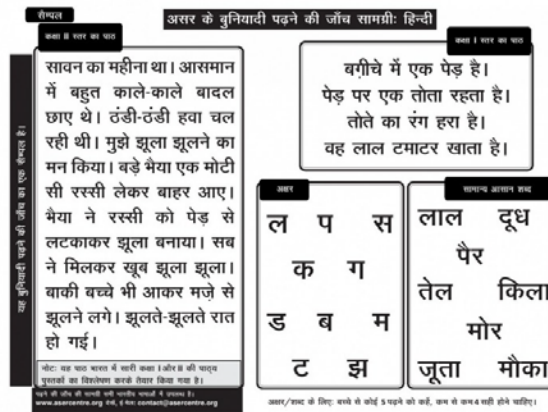 सैम्पल
असर के बुनियादी पढ़ने की जाँच सामग्रीः हिन्दी
यह बुनियादी पढ़ने की जाँच का एक सैम्पल है।
कक्षा II स्तर का पाठ
सावन का महीना था। आसमान
में बहुत काले-काले बादल
छाए थे। ठंडी-ठंडी हवा चल
रही थी। मुझे झूला झूलने का
मन किया। बड़े भैया एक मोटी
सी रस्सी लेकर बाहर आए।
भैया ने रस्सी को पेड़ से
लटकाकर झूला बनाया। सब
ने मिलकर खूब झूला झूला।
बाकी बच्चे भी आकर मज़े से
झूलने लगे। झूलते-झूलते रात
हो गई।
नोटः यह पाठ भारत में सारी कक्षा I और II की पाठ्य
पुस्तकों का विश्लेषण करके तैयार किया गया है।
पढ़ने की जाँच की सामग्री सभी भारतीय भाषाओं में उपलब्ध है।
www.asercentre.org देखें, ई मेलः contact@asercentre.org
कक्षा I स्तर का पाठ
बगीचे में एक पेड़ है।
पेड़ पर एक तोता रहता है।
तोते का रंग हरा है।
वह लाल टमाटर खाता है।
अक्षर
ल प स
क ग
ड ब म
ट झ
सामान्य आसान शब्द
लाल दूध
पैर
तेल किला
मोर
जूता मौका
अक्षर/शब्द के लिएः बच्चे से कोई 5 पढ़ने को कहें, कम से कम 4 सही होने चाहिए।